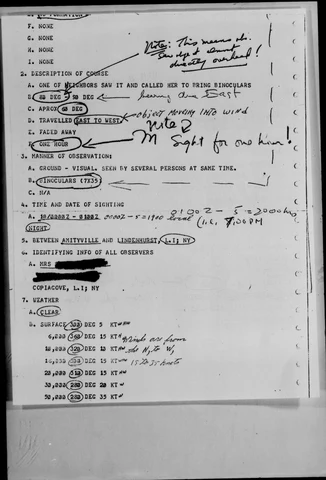 E. INFORMATION
F. NONE
G. NONE
H. NONE
I. NONE
Note: This means
object almost
directly overhead!
2. DESCRIPTION OF COURSE
A. ONE OF NEIGHBORS SAW IT AND CALLED HER TO BRING BINOCULARS
B. 88 DEG 90 DEG bearing due East
C. APROX 60 DEG
D. TRAVELLED EAST TO WEST object moving into wind
E. FADED AWAY
Note
F. ONE HOUR In Sight for one hour!
3. MANNER OF OBSERVATION:
A. GROUND - VISUAL SEEN BY SEVERAL PERSONS AT SAME TIME.
B. BINOCULARS (7X35
C. N/A
4. TIME AND DATE OF SIGHTING
0100Z - 5 = 2000 hrs
A. 0000Z - 5 = 1900 local (i.e. 7:00 PM
NIGHT
5. BETWEEN AMITYVILLE AND LINDENHURST, L.I; NY
6. IDENTIFYING INFO OF ALL OBSERVERS
A. MRS
COPIAGOVE, L.I; NY
7. WEATHER
A. CLEAR
B. SURFACE DEG 5 KT
6,000 DEG 15 KT Winds are from
DEG 15 KT the N, to W,
DEG 15 KT 15 to 35 knots
20,000 DEG 15 KT
30,000 DEG 20 KT
50,000 DEG 35 KT